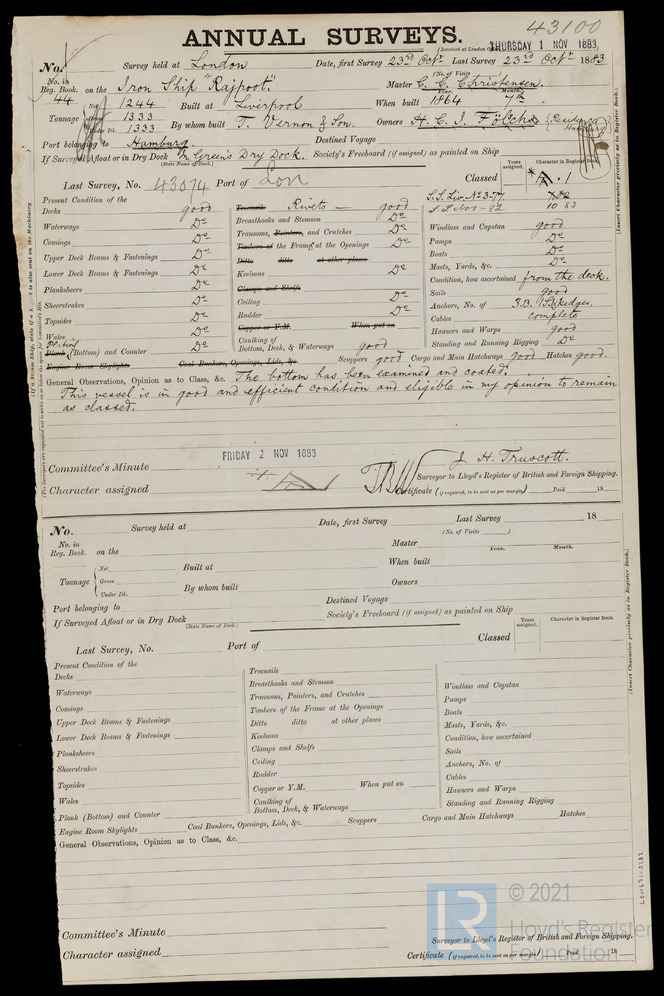 43100
ANNUAL SURVEYS.
(Received at London
THURSDAY 1 NOV 1883
No. Survey held at London Date, first Survey 23rd Octr Last Survey 23rd Octr 1883
(No. of Visits
No. in Reg. Book. 44 on the Iron Ship "Rajpoot." Master C. C. Christensen.
Year. Month.
Tonnage Net 1244 Built at Liverpool When built 1864 7th
Gross 1333
Under Dk. 1333 By whom built T. Vernon & Son. Owners H. C. J. Fölsch (Residence Hamburg
Port belonging to Hamburg Destined Voyage
If Surveyed Afloat or in Dry Dock In Green's Dry Dock. Society's Freeboard (if assigned) as painted on Ship
(State Name of Dock.)
Years assigned. Character in Register Book.
Last Survey, No. 43074 Port of Lon Classed A.1
S.S. Liv. No 3-77
10 83
Present Condition of the
Decks good
Waterways Do
Comings Do
Upper Deck Beams & Fastenings Do
Lower Deck Beams & Fastenings Do
Planksheers Do
Sheerstrakes Do
Topsides Do
Wales Do
Plating
Plank (Bottom) and Counter Do
Treenails Rivets good
Breasthooks and Stemson Do
Transoms, Pointers, and Crutches Do
Timbers of the Frame at the Openings Do
Ditto ditto at other places
Keelsons Do
Clamps and Shelfs
Ceiling Do
Rudder Do
Copper or Y.M. When put on
Caulking of Bottom, Deck, & Waterways good
Windlass and Capstan good
Pumps Do
Boats Do
Masts, Yards, &c. Do
Condition, how ascertained from the deck.
Sails good
Anchors, No. of 3B. 1S. 2kedges.
Cables complete
Hawsers and Warps good
Standing and Running Rigging Do
Engine Room Skylights Coal Bunkers, Openings, Lids, &c. Scuppers good Cargo and Main Hatchways good Hatches good.
General Observations, Opinion as to Class, &c. The bottom has been examined and coated.
This vessel is in good and efficient condition and eligible in my opinion to remain
as classed.
J. H. Truscott.
Surveyor to Lloyd's Register of British and Foreign Shipping.
FRIDAY 2 NOV 1883
Committee's Minute
Character assigned
Certificate (if required, to be sent as per margin) Paid 18
(Insert Character precisely as in Register Book.)
No. Survey held at Date, first Survey Last Survey 18
(No. of Visits )
No. in Reg. Book. on the Master
Year. Month.
Tonnage Net Built at When built
Gross
Under Dk. By whom built Owners
Port belonging to Destined Voyage
If Surveyed Afloat or in Dry Dock Society's Freeboard (if assigned) as painted on Ship
(State Name of Dock.)
Years assigned. Character in Register Book.
Last Survey, No. Port of Classed
Present Condition of the
Decks
Waterways
Comings
Upper Deck Beams & Fastenings
Lower Deck Beams & Fastenings
Planksheers
Sheerstrakes
Topsides
Wales
Plank (Bottom) and Counter
Treenails
Breasthooks and Stemson
Transoms, Pointers, and Crutches
Timbers of the Frame at the Openings
Ditto ditto at other places
Keelsons
Clamps and Shelfs
Ceiling
Rudder
Copper or Y.M. When put on
Caulking of Bottom, Deck, & Waterways
Windlass and Capstan
Pumps
Boats
Masts, Yards, &c.
Condition, how ascertained
Sails
Anchors, No. of
Cables
Hawsers and Warps
Standing and Running Rigging
Engine Room Skylights Coal Bunkers, Openings, Lids, &c. Scuppers Cargo and Main Hatchways Hatches
General Observations, Opinion as to Class, &c.
(Insert Character precisely as in Register Book.)
LON491-0282
LR
© 2021
Lloyd's Register
Foundation
Committee's Minute
Surveyor to Lloyd's Register of British and Foreign Shipping.
Character assigned
Certificate (if required, to be sent as per margin) Paid 18